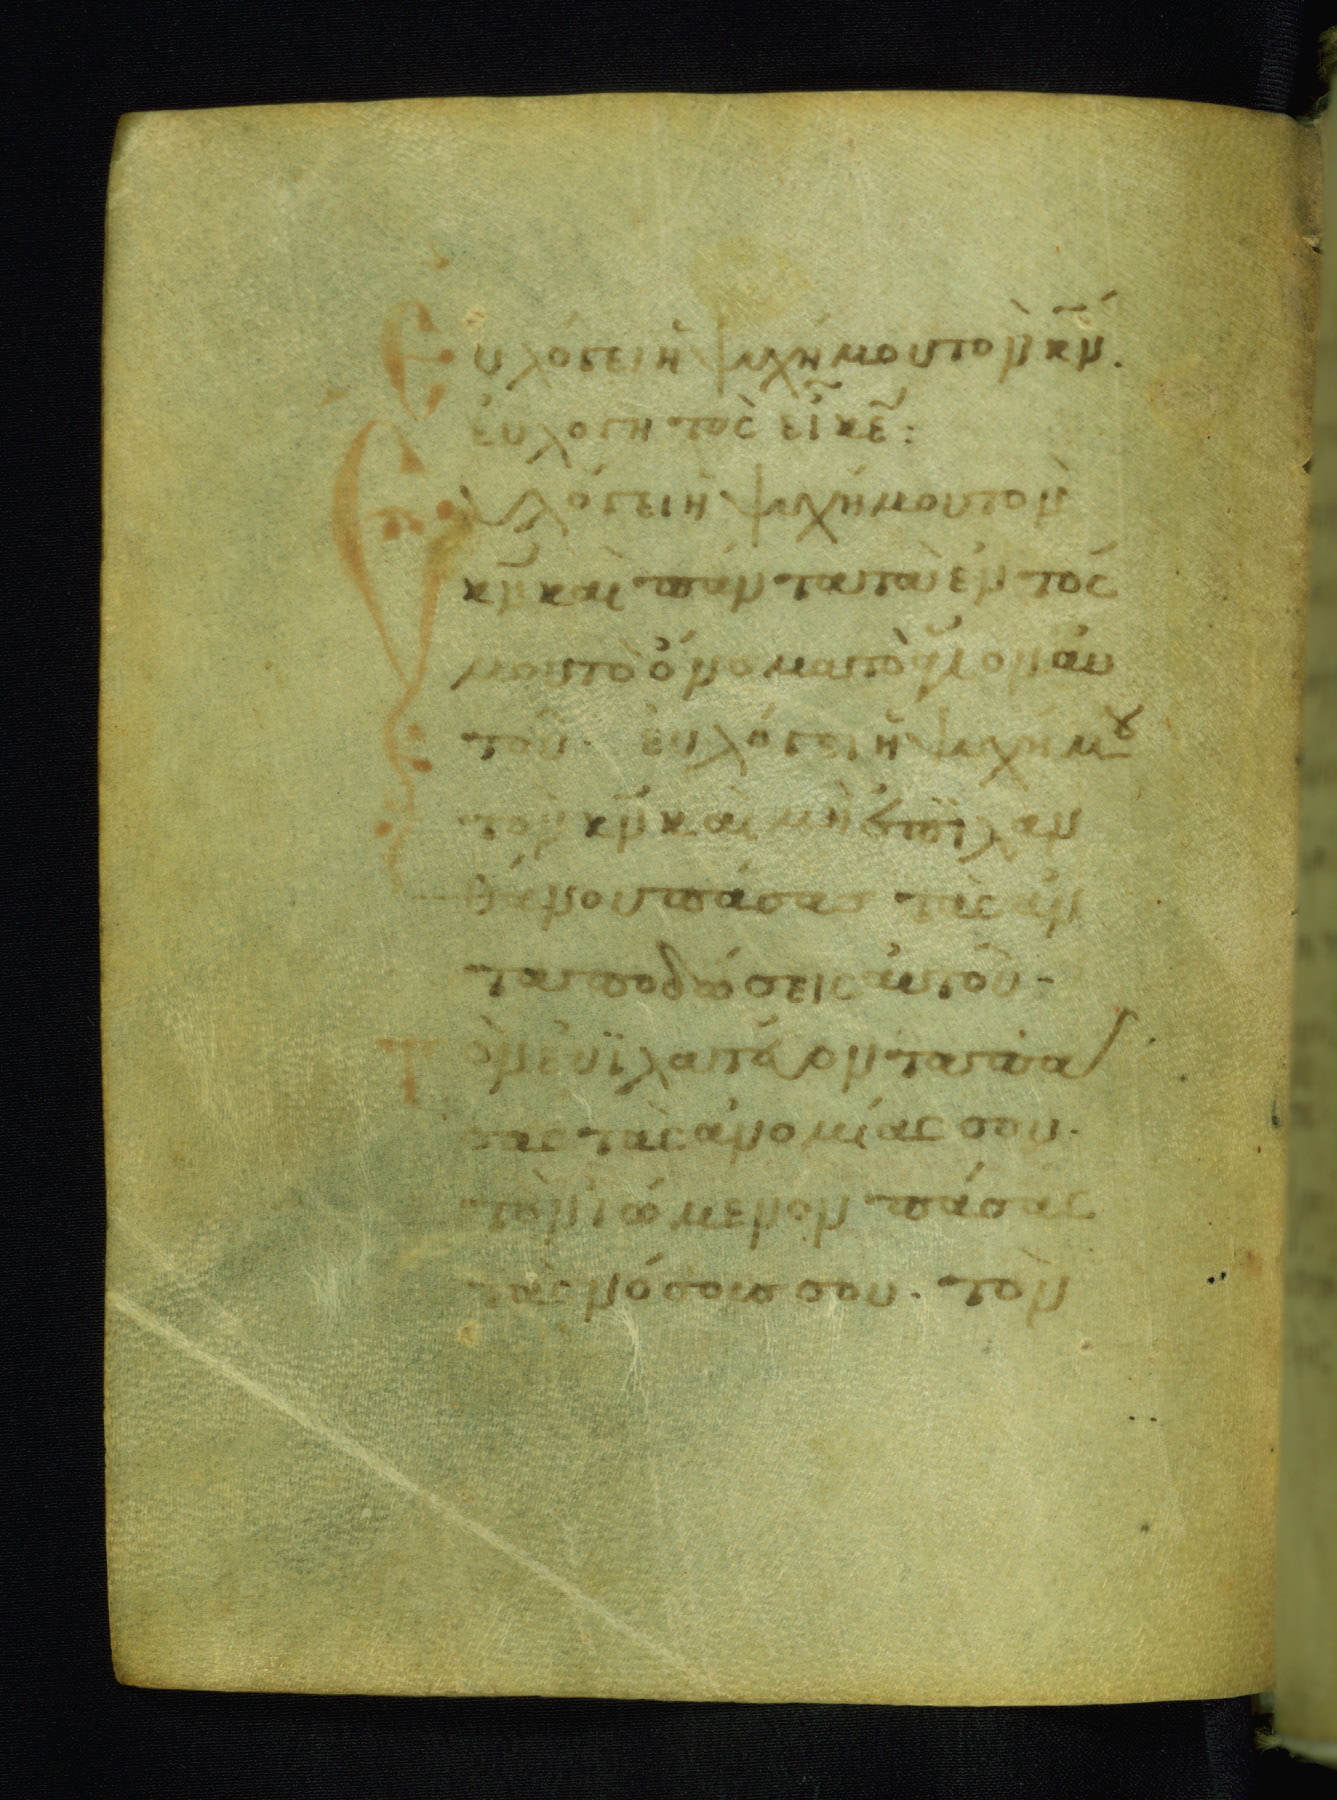 Εὐλόγει ἡ ψυχή μου τὸν κ̅ν̅.
εὐλογητὸς εἶ κ̅ε̅:
Εὐλόγει ἡ ψυχή μου τὸν
κ̅ν̅ καὶ πάντα τὰ ἐντός
μου τὸ ὄνομα τὸ ἅγιον αὐ
τοῦ· εὐλόγει ἡ ψυχή μου
τὸν κ̅ν̅ καὶ μὴ ἐπιλαν
θάνου πάσας τὰς ἀν
ταποδώσεις αὐτοῦ·
Τὸν εὐϊλατεύοντα πάσα
τὰς ἀνομίας σου·
τὸν ἰώμενον πάσας
τὰς νόσους σου· τὸν